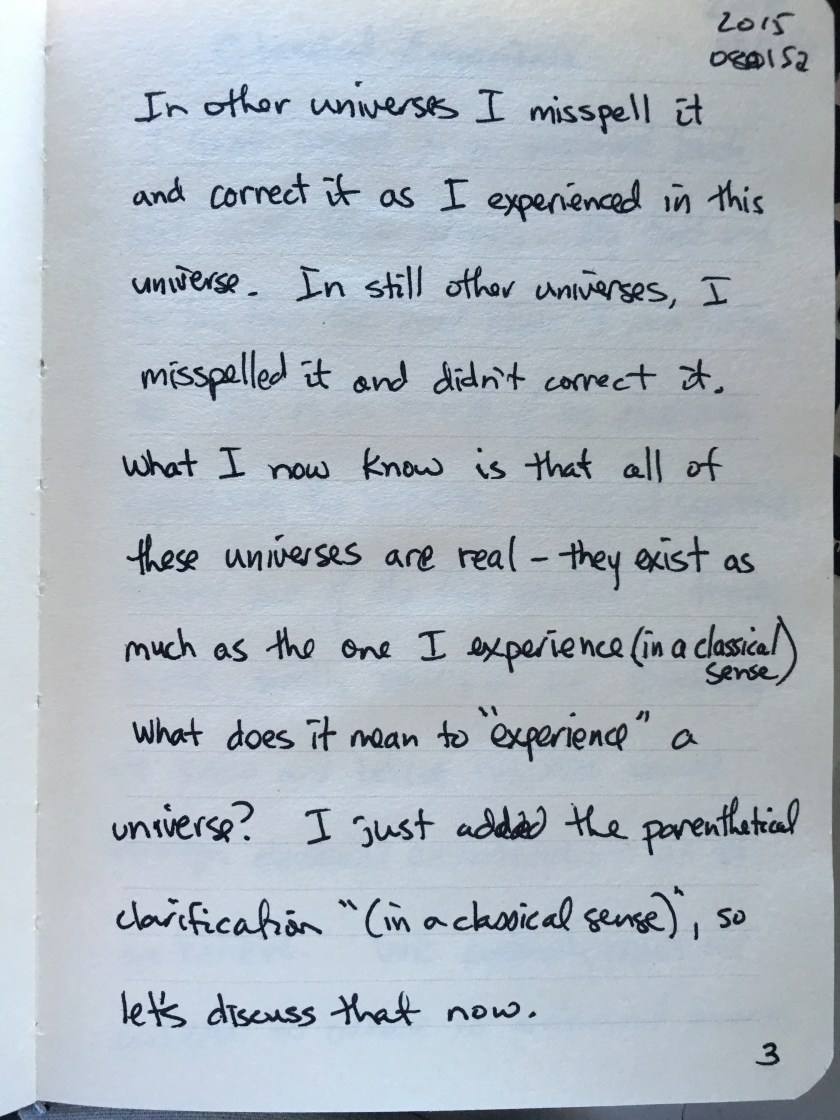 2015
In other universes I misspell it
and correct it as I experienced in this
universe. In still other universes, I
misspelled it and didn't correct it.
What I now know is that all of
these universes are real – they exist as
much as the one I experience (in a classical
sense)
What does it mean to "experience" a
universe? I just added the parenthetical
clarification "(in a classical sense)", so
let's discuss that now.
3